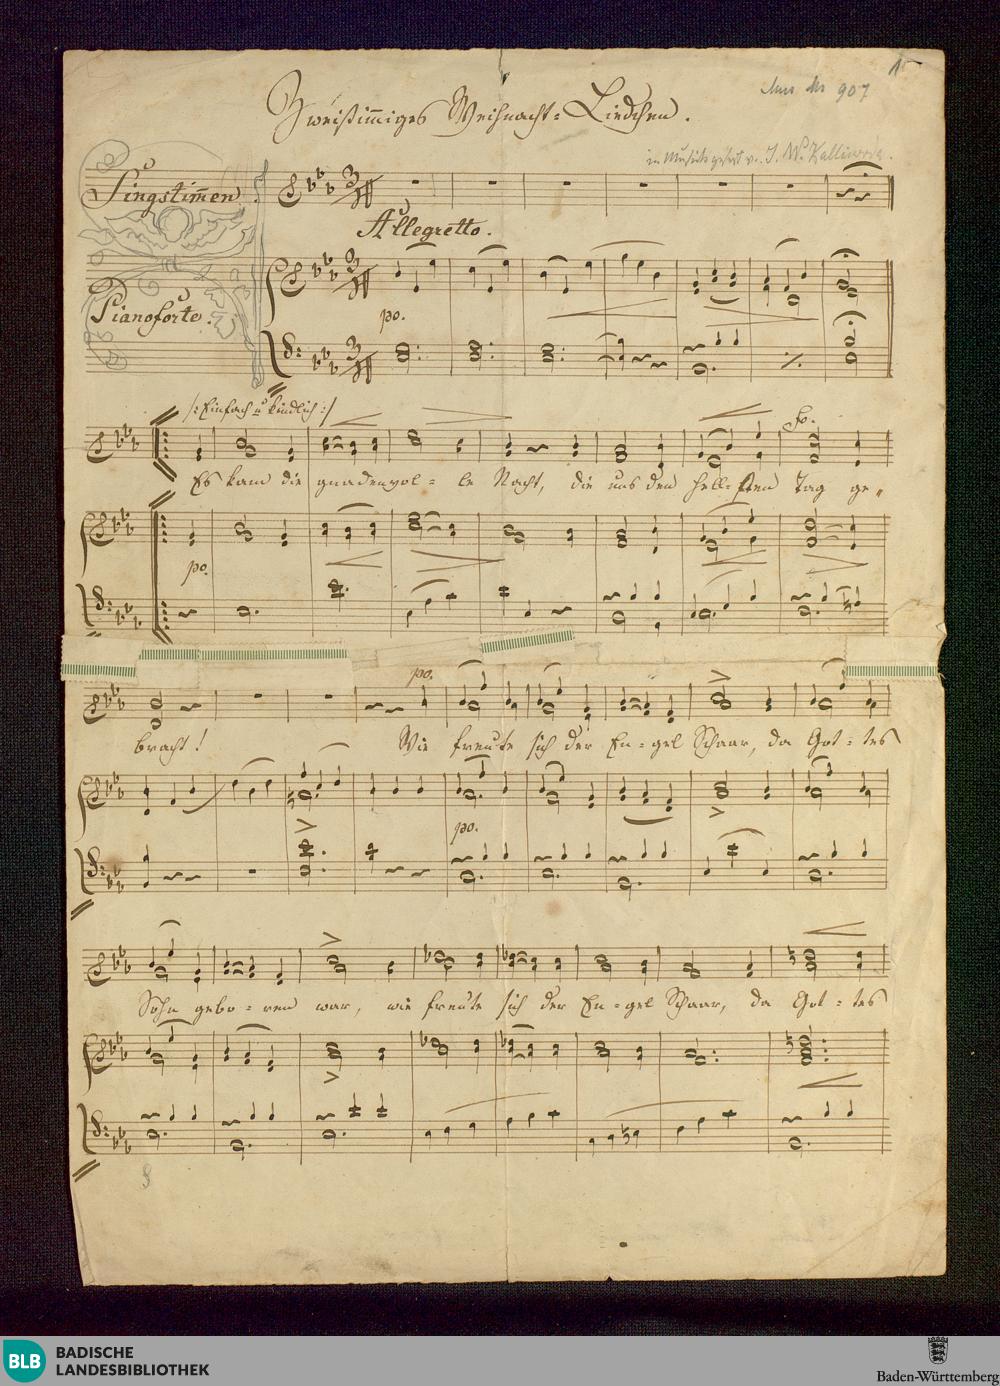 1
Mus Hs 907
Zweistimmiges Weihnacht-Liedchen.
in Musik gesetzt v. J. W. Kalliwoda.
Singstimmen
Allegretto.
Pianoforte.
po.
/:Einfach u kindlich:/
fo.
Es kam die gnadenvol-le Nacht, die uns den hell-sten Tag ge-
po.
po.
bracht! Wie freute sich der En-gel Schaar, da Got-tes
po.
Sohn gebo-ren war, wie freute sich der En-gel Schaar, da Got-tes
BLB BADISCHE
LANDESBIBLIOTHEK
Baden-Württemberg